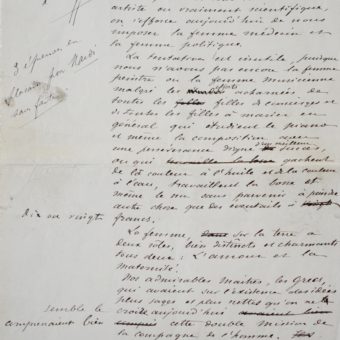 artiste ou vraiment scientifique,
on s'efforce aujourd'hui de nous
imposer la femme médecin et
la femme politique.
3 épreuves en
placards pour Mardi
sans faute
La tentative est inutile, puisque
nous n'avons pas encore la femme
peintre ou la femme musicienne
malgré les efforts acharnés de
toutes les filles de concierges et
de toutes les filles à marier en
général qui étudient le piano
et même la composition avec
une persévérance digne d'un meilleur succès,
ou qui gachent
de la couleur à l'huile et de la couleur
à l'eau, travaillent la bosse et
même le nu sans parvenir à peindre
autre chose que des éventails à
dix ou vingts
francs.
La femme, sur la terre a
deux rôles, bien distincts et charmants
tous deux : L'amour et la
maternité.
Nos admirables Maîtres, les Grecs,
qui avaient sur l'existence des idées
plus sages et plus nettes qu'on ne le
croit aujourd'hui
semble le
comprenaient bien
cette double mission de
la compagne de l'homme.